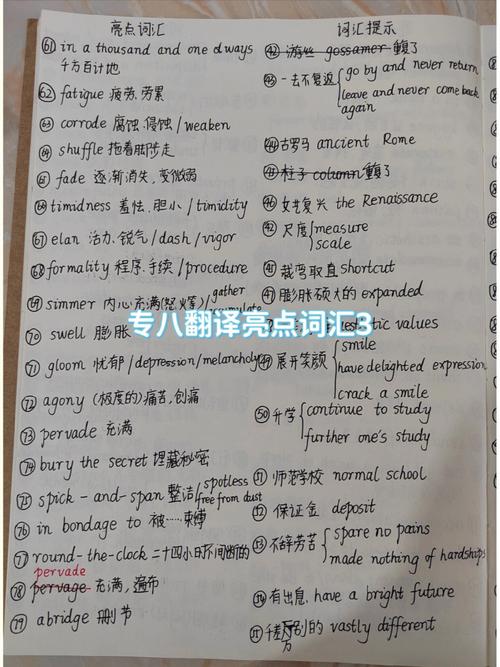 亮点词汇
61 in a thousand and one dways
千方百计地
62 fatigue 疲劳,劳累
63 corrode 腐蚀,侵蚀/weaken
64 shuffle 拖着脚步走
65 fade 逐渐消失,变微弱
66 timidness 羞怯,胆小/timidity
67 elan 活力,锐气/dash/vigor
68 formality 程序,手续/procedure
69 simmer 内心充满(怒火等)/gather
70 swell 膨胀
71 gloom 忧郁/depression/melancholy
72 agony (极度的)痛苦,创痛
73 pervade 充满
74 bury the secret 埋藏秘密
75 spick-and-span 整洁/spotless
free from dust
76 in bondage to 被……束缚
77 round-the-clock 二十四小时不间断的
pervade
78 pervage 充满,遍布
79 abridge 删节
词汇提示
42 游丝 gossamer 重复了
43 一去不复返 go by and never return
leave and never come back
again
44 古罗马 ancient Rome
45 柱子 column 重复了
46 文艺复兴 the Renaissance
尺度 measure
scale
截弯取直 shortcut
47 膨胀硕大的 expanded
values
49 展开笑颜 smile
have delighted expression
crack a smile
50 升学 continue to study
further one's study
51 师范学校 normal school
52 保证金 deposit
53 不辞劳苦 spare no pains
made nothing of hardships
54 有出息 have a bright future
55 千差万别的 vastly different
专八翻译亮点词汇3